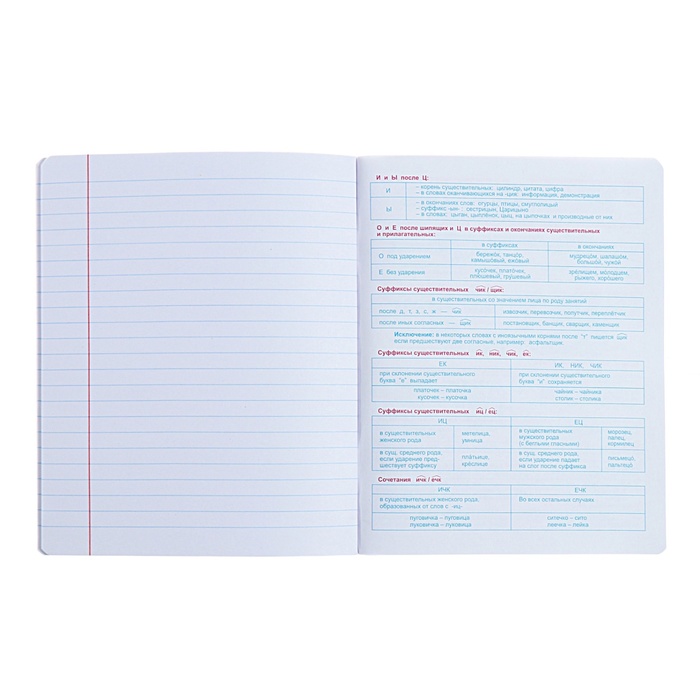 И и Ы после Ц:
И
– корень существительных: цилиндр, цитата, цифра
– в словах оканчивающихся на -ция: информация, демонстрация
Ы
– в окончаниях слов: огурцы, птицы, смуглолицый
– суффикс -ын- : сестрицын, Царицыно
– в словах: цыган, цыплёнок, цыц, на цыпочках и производные от них
О и Е после шипящих и Ц в суффиксах и окончаниях существительных
и прилагательных:
в суффиксах
в окончаниях
О под ударением
бережок, танцор,
камышовый, ежовый
мудрецом, шалашом,
большой, чужой
Е без ударения
кусочек, платочек,
плюшевый, грушевый
зрелищем, молодцем,
рыжего, хорошего
Суффиксы существительных чик / щик:
в существительных со значением лица по роду занятий
после д, т, з, с, ж — чик
извозчик, перевозчик, попутчик, переплётчик
после иных согласных — щик
постановщик, банщик, сварщик, каменщик
Исключение: в некоторых словах с иноязычными корнями после "т" пишется щик
если предшествуют две согласные, например: асфальтщик
Суффиксы существительных ик, ник, чик, ек:
ЕК
ИК, НИК, ЧИК
при склонении существительного
буква "е" выпадает
при склонении существительного
буква "и" сохраняется
платочек – платочка
кусочек – кусочка
чайник – чайника
столик – столика
Суффиксы существительных иц / ец:
ИЦ
ЕЦ
в существительных
женского рода
метелица,
умница
в существительных
мужского рода
(с беглыми гласными)
морозец,
палец,
кормилец
в сущ. среднего рода,
если ударение пред-
шествует суффиксу
платьице,
креслице
в сущ. среднего рода,
если ударение падает
на слог после суффикса
письмецо,
пальтецо
Сочетания ичк / ечк
ИЧК
ЕЧК
в существительных женского рода,
образованных от слов с -иц-
Во всех остальных случаях
пуговичка – пуговица
луковичка – луковица
ситечко – сито
леечка – лейка